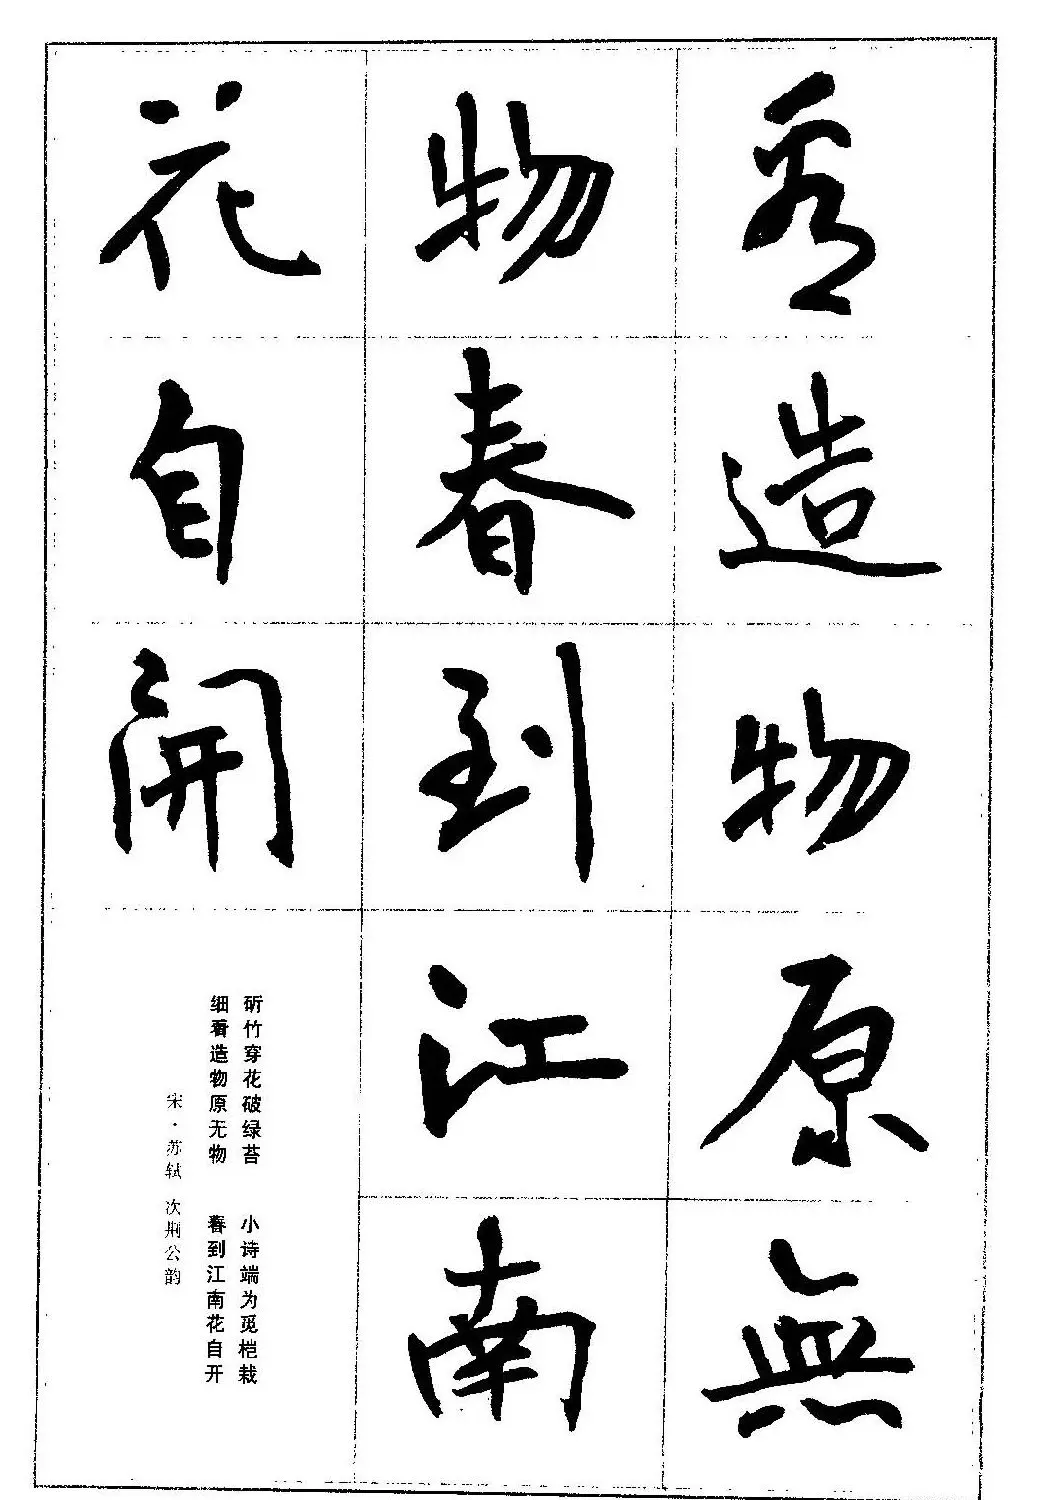 看造物原無
物春到江南
花自开
斫竹穿花破绿苔 小诗端为觅桤栽
细看造物原无物 春到江南花自开
宋·苏轼 次荆公韵